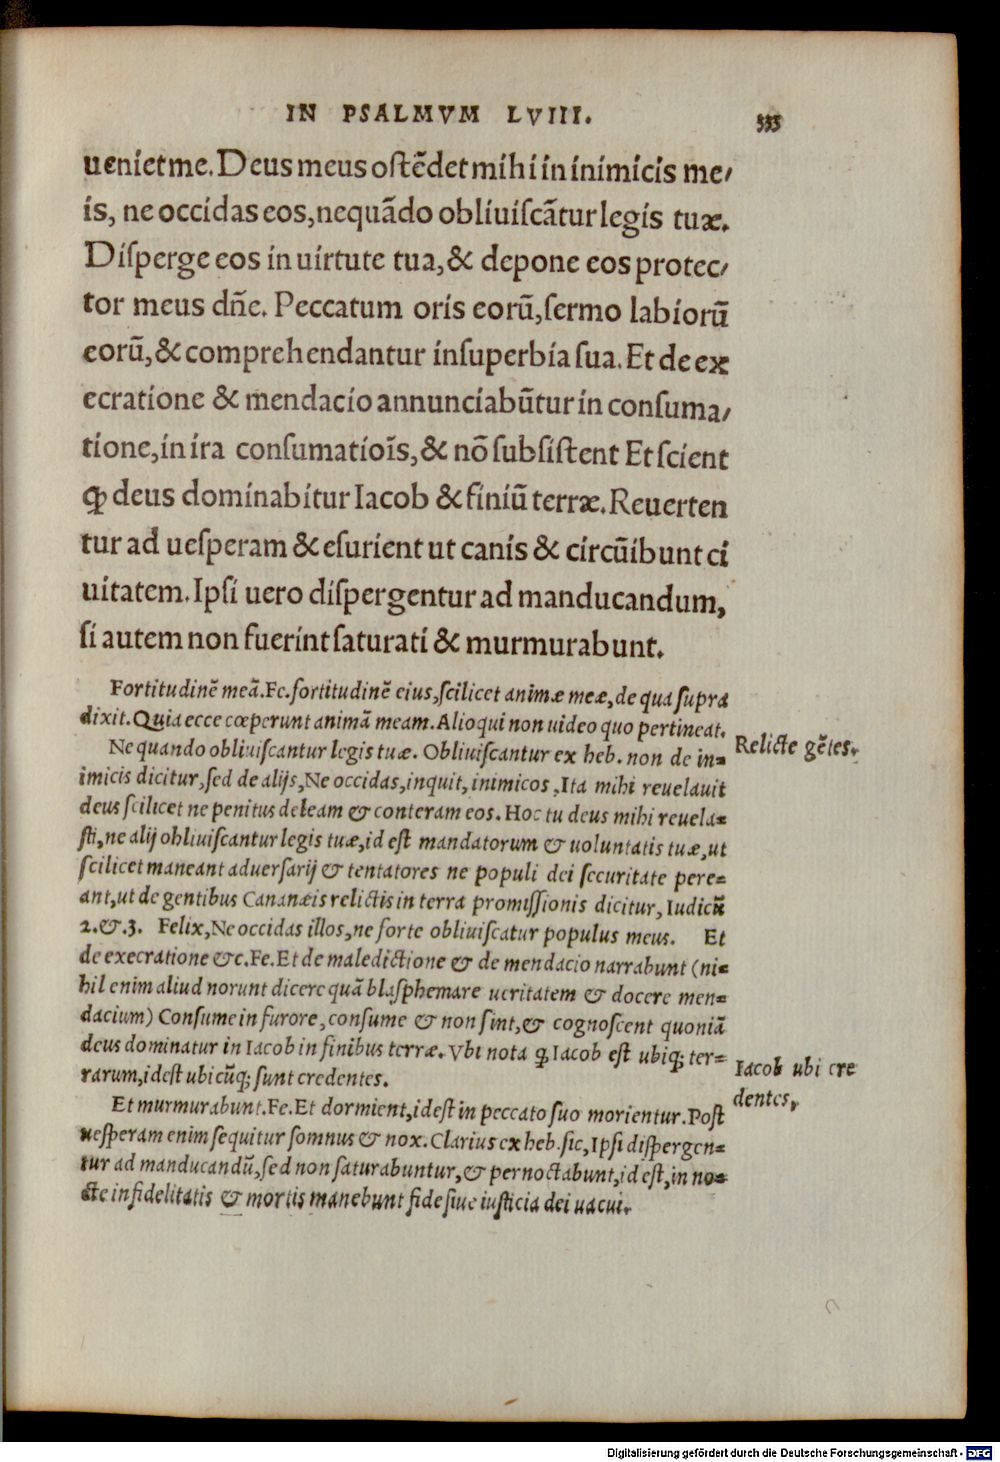 IN PSALMVM LVIII. 333
ueniet me. Deus meus ostēdet mihi in inimicis me/
is, ne occidas eos, nequādo obliuiscātur legis tuæ.
Disperge eos in uirtute tua, & depone eos protec/
tor meus dñe. Peccatum oris eorū, sermo labiorū
eorū, & comprehendantur in superbia sua. Et de ex
ecratione & mendacio annunciabūtur in consuma/
tione, in ira consumatiōis, & nō subsistent Et scient
ꝙ deus dominabitur Iacob & finiū terræ. Reuerten
tur ad uesperam & esurient ut canis & circūibunt ci
uitatem. Ipsi uero dispergentur ad manducandum,
si autem non fuerint saturati & murmurabunt.
Fortitudinē meā. Fe. fortitudinē eius, scilicet animæ meæ, de qua supra
dixit. Quia ecce cœperunt animā meam. Alioqui non uideo quo pertineat.
Ne quando obliuiscantur legis tuæ. Obliuiscantur ex heb. non de in=
Relictę gētes.
imicis dicitur, sed de alijs, Ne occidas, inquit, inimicos, Ita mihi reuelauit
deus scilicet ne penitus deleam & conteram eos. Hoc tu deus mihi reuela=
sti, ne alij obliuiscantur legis tuæ, id est mandatorum & uoluntatis tuæ, ut
scilicet maneant aduersarij & tentatores ne populi dei securitate pere=
ant, ut de gentibus Cananæis relictis in terra promissionis dicitur, Iudicū
2. & 3. Felix, Ne occidas illos, ne forte obliuiscatur populus meus. Et
de execratione &c. Fe. Et de maledictione & de mendacio narrabunt (ni=
hil enim aliud norunt dicere quā blasphemare ueritatem & docere men=
dacium) Consume in furore, consume & non sint, & cognoscent quoniā
deus dominatur in Iacob in finibus terræ. Vbi nota ꝙ Iacob est ubiqꝫ ter=
Iacob ubi cre
rarum, id est ubicūqꝫ sunt credentes.
dentes,
Et murmurabunt. Fe. Et dormient, id est in peccato suo morientur. Post
uesperam enim sequitur somnus & nox. Clarius ex heb. sic, Ipsi dispergen=
tur ad manducandū, sed non saturabuntur, & pernoctabunt, id est, in no=
cte infidelitatis & mortis manebunt fide siue iusticia dei uacui.
Digitalisierung gefördert durch die Deutsche Forschungsgemeinschaft - DFG